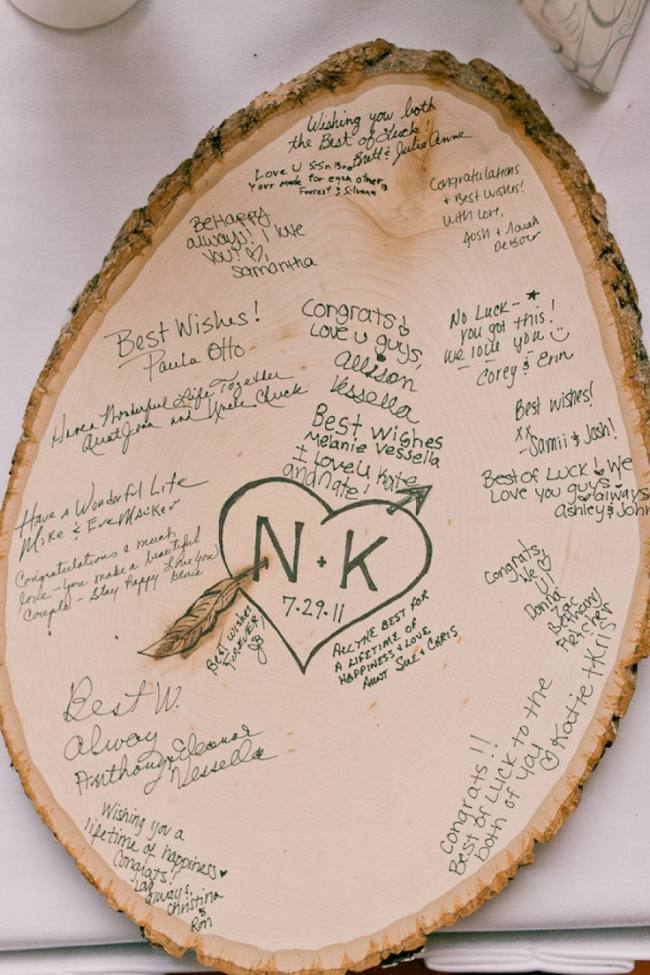 Wishing you both
the Best of Luck!
Brett & Julie Anne
Love U
Your made for each other
Forrest & Silvana
Congratulations
+ Best Wishes!
With Love,
Josh & Sarah
BeHappy
always! I love
you! ♡,
Samantha
Best Wishes!
Paula Otto
Congrats!
Love u guys,
Allison
Vessella
No Luck-
you got this!
we love you
Corey & Erin
Have a Wonderful Life Together
and Uncle Chuck
Best Wishes
Melanie Vessella
I Love U Kate
and Nate!
Best Wishes!
xx
-Samii & Josh!
Best of Luck! We
Love you guys
always
Ashley & John
Have a Wonderful Life
Mike & Eve Macker
Congratulations & much
love - you make a beautiful
Couple - Stay Happy Love you
N + K
7.29.11
Congrats,
We ♡
U!
Donna,
Bethany
Fletcher
Best Wishes
Forever!
JB
All the best for
a lifetime of
happiness & love
Aunt Sue & Chris
Best W.
Alway
Anthony & Eleanor
Vessella
Congrats!!
Best of Luck to the
both of you
♡ Katie + Kris
Wishing you a
lifetime of happiness
Congrats!
Love
always,
Christina
&
Ron